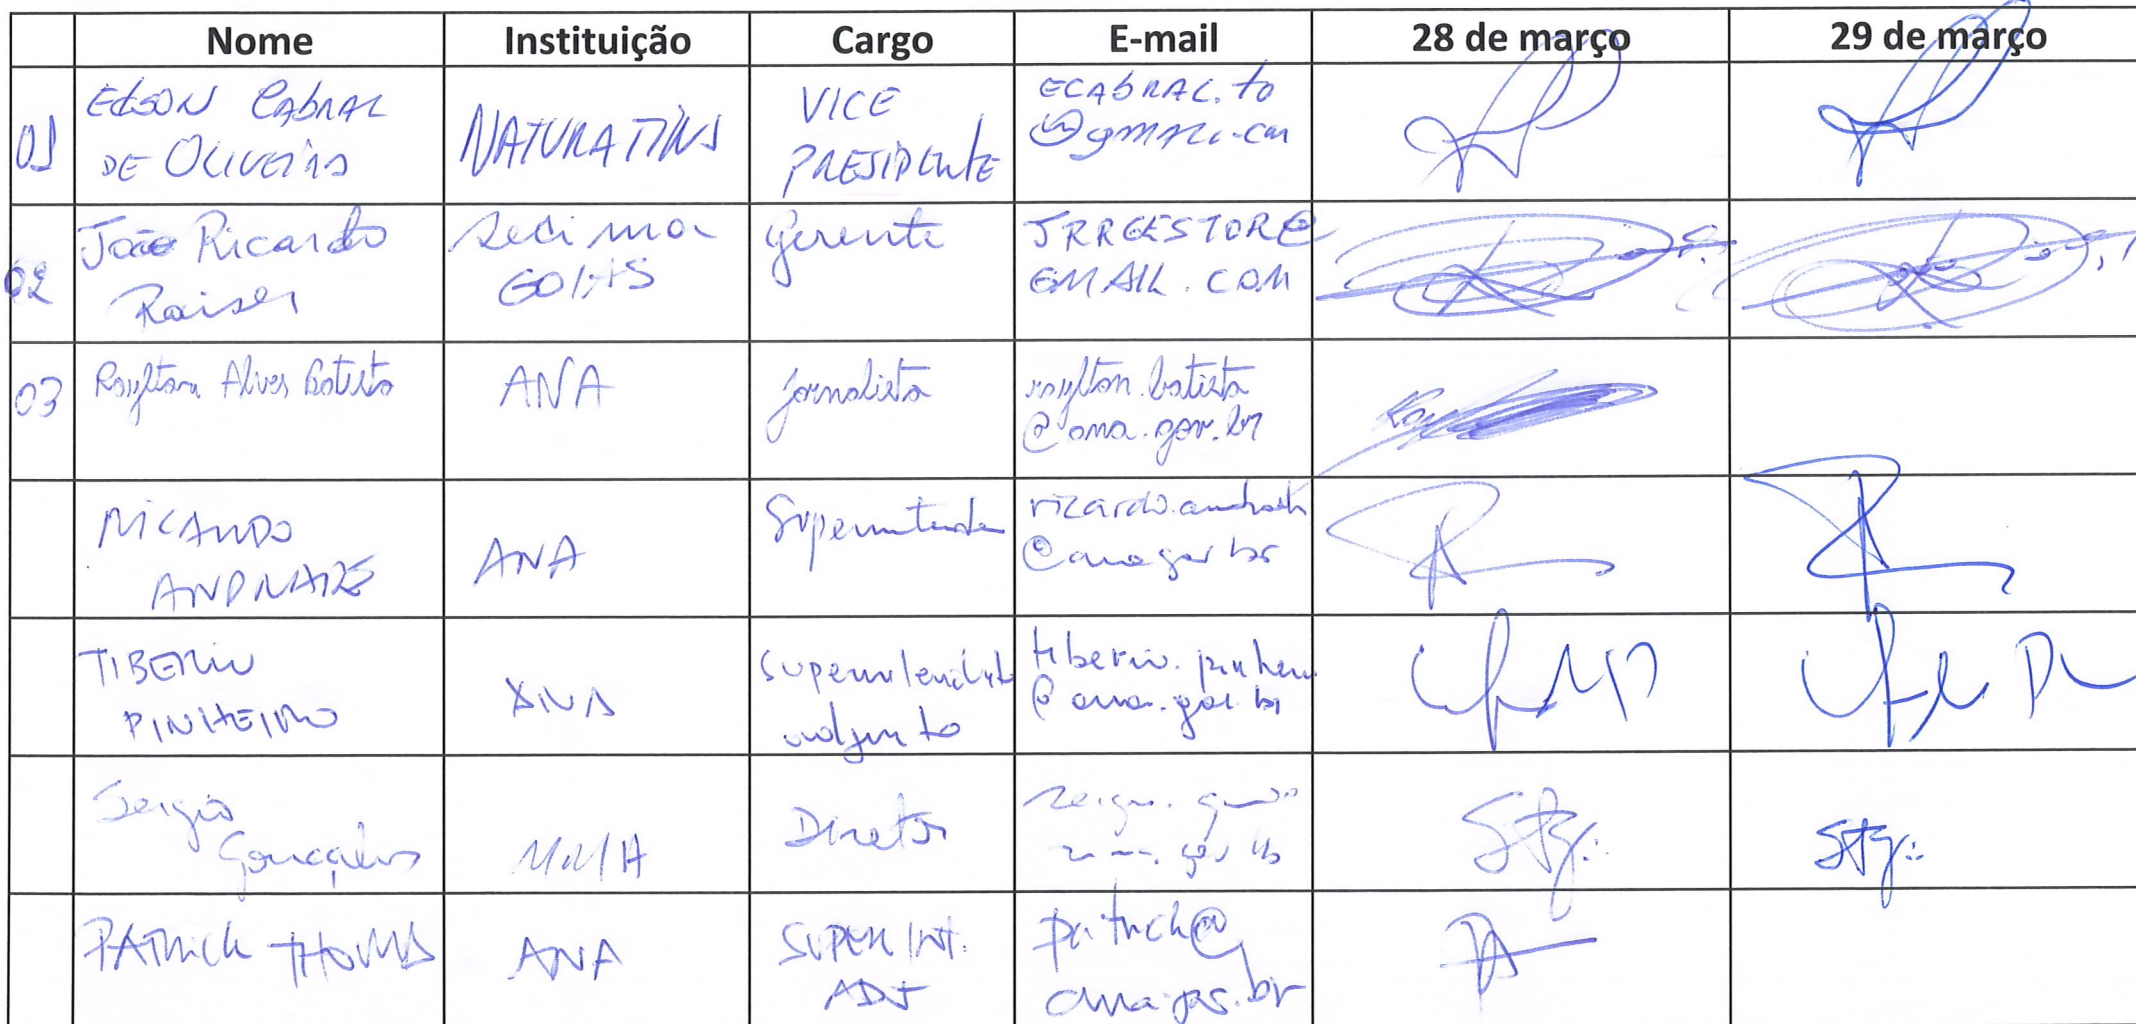 Nome Instituição Cargo E-mail 28 de março 29 de março
01 EDSON CABRAL DE OLIVEIRA NATURATINS VICE PRESIDENTE ECABRAL.to @gmail.com
02 João Ricardo Raiser Secima GOIÁS Gerente JRRGESTOR@ GMAIL.COM
03 Roylton Alves Batista ANA Jornalista roylton.batista @ana.gov.br
RICARDO ANDRADE ANA Superintendente ricardo.andrade @ana.gov.br
TIBERIO PINHEIRO ANA Superintendente adjunto tiberio.pinheiro @ana.gov.br
Sergio Gonçalves MMA Diretor
PATRICK THOMAS ANA SUPERINT. ADJ patrick@ ana.gov.br